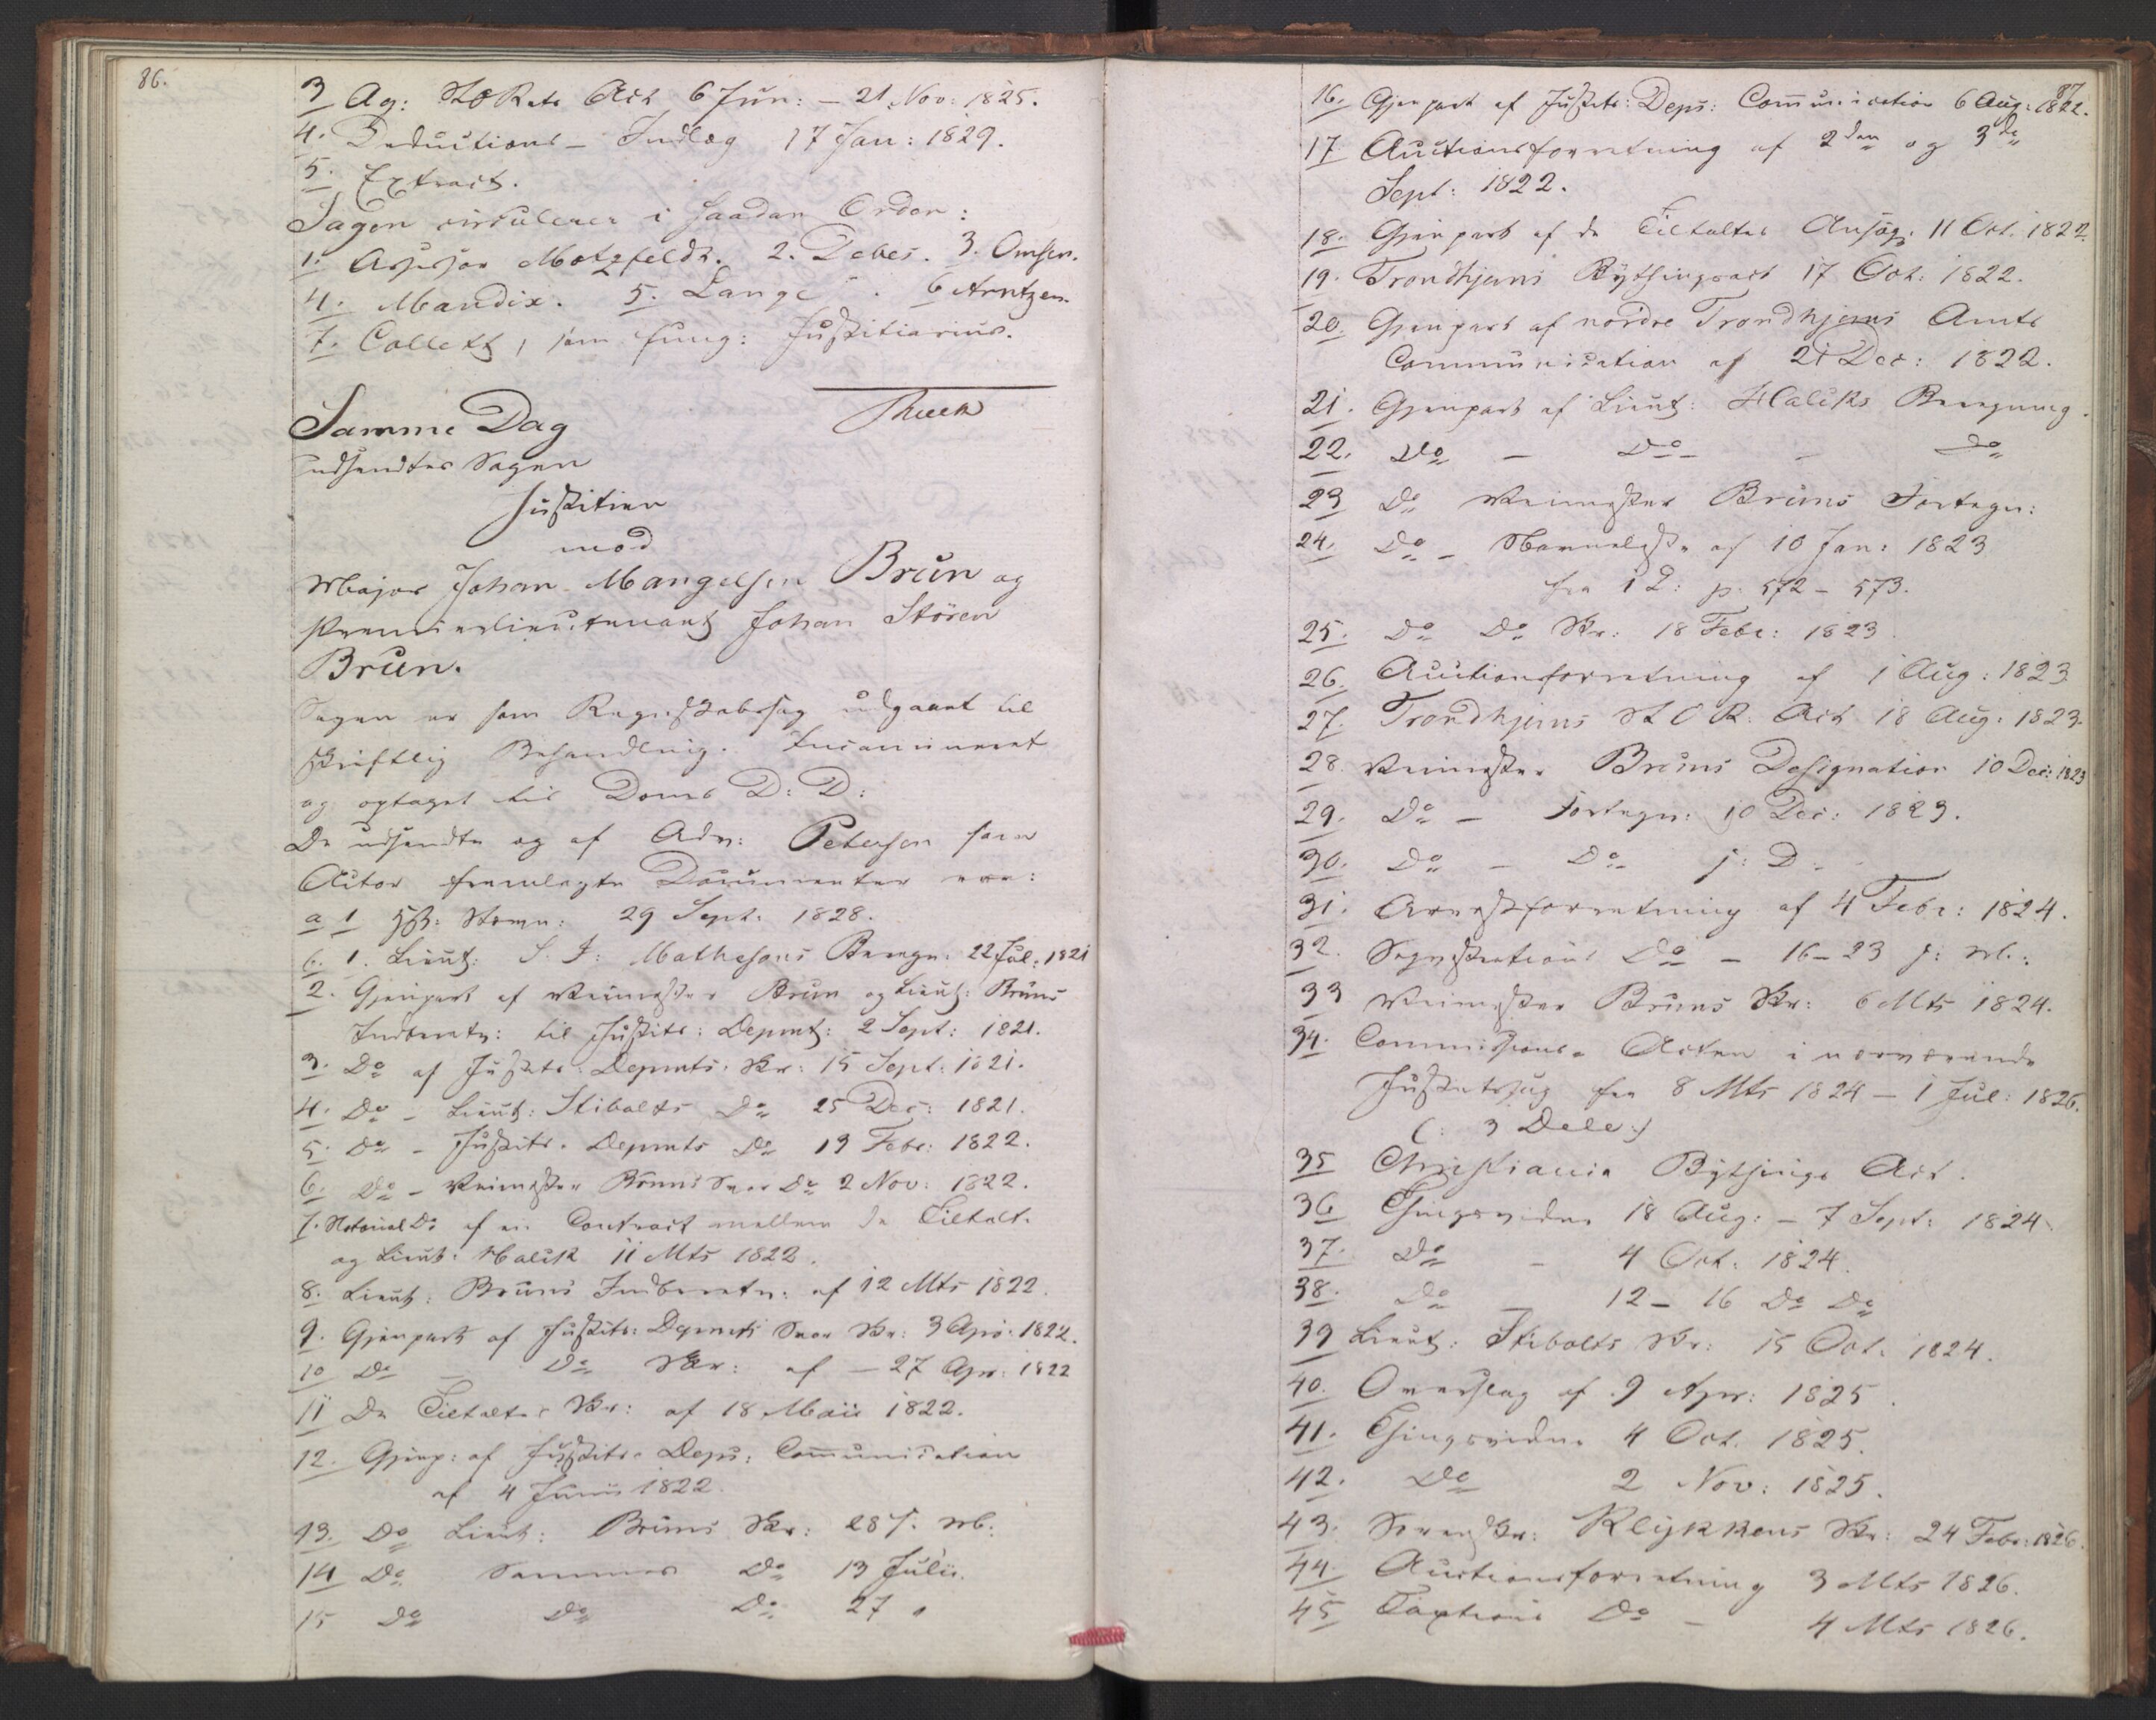 86.
3 Ag: StORets Act 6 Jun: – 21 Nov: 1825.
4. Deductions – Indlæg 17 Jan: 1829.
5. Extract.
Sagen circulerer i saadan Orden:
1. Assessor Motzfeldt. 2. Debes. 3. Omsen.
4. Mandix. 5. Lange. 6 Arntzen.
7. Collett, som fung: Justitiarius.
Samme Dag
udsendtes Sagen
Justitien
mod
Major Johan Mangelsen Brun og
Premierlieutenant Johan Stören
Brun.
Sagen er som Regnskabssag udgaaet til
skriftlig Behandling. Incamineret
og optaget til Doms D: D:
De udsendte og af Adv: Petersen som
Actor fremlagte Documenter ere:
a 1 HR: Stevn: 29 Sept. 1828.
b. 1. Lieut: Mathesons Beregn. 22 Jul. 1821
2. Gjenpart af Veimester Brun og Lieut: Bruns
Indberetn: til Justits: Depmt: 2 Sept: 1821.
3. Do af Justits: Depmts. Skr: 15 Sept: 1821.
4. Do – Lieut: Stibolts Do 25 Dec: 1821.
5. Do – Justits. Depmts Do 19 Febr: 1822.
6. Do – Veimester Bruns Svar Do 2 Nov: 1822.
7. Notarial Do af en Contract mellem de Tiltalt.
og Lieut: Halck 11 Mts 1822.
8. Lieut: Bruns Indberetn: af 12 Mts 1822.
9. Gjenpart af Justits: Depmets Svar Skr: 3 Apr. 1822.
10 Do – Do Skr: af – 27 Apr: 1822
11 De Tiltaltes Skr: af 18 Maii 1822.
12. Gjenp: af Justits. Dep: Communication
af 4 Junii 1822.
13. Do Lieut: Bruns Skr: 28 s. M:
14 Do Sammes Do 13 Julii.
15 Do Do Do 27 "
87
16. Gjenpart af Justits: Dep: Communication 6 Aug: 1822.
17 Auctionsforretning af 2den og 3de
Sept: 1822.
18. Gjenpart af de Tiltaltes Ansøg: 11 Oct. 1822.
19. Trondhjems Bythingsact 17 Oct: 1822.
20. Gjenpart af nordre Trondhjems Amts
Communication af 21 Dec: 1822.
21. Gjenpart af Lieut: Halcks Beregning.
22. Do – Do – Do
23 Do Veimester Bruns Fortegn:
24. Do – af 10 Jan: 1823
fra 1 L: p. 572 – 573.
25. Do Do Skr: 18 Febr: 1823.
26. Auctionsforretning af 1 Aug: 1823
27. Trondhjems StOR. Act 18 Aug: 1823.
28. Veimester Bruns Designation 10 Dec: 1823
29. Do – Fortegn: 10 Dec: 1823.
30. Do – Do s: D.
31. Arrestforretning af 4 Febr: 1824.
32. Do – 16 – 23 s: M:
33 Veimester Bruns Skr: 6 Mts 1824.
34. Commissions-Acten i nærværende
Justitssag fra 8 Mts 1824 – 1 Jul: 1826.
(: 3 Dele:)
35 Christiania Bythings Act.
36 Thingsvidne 18 Aug: – 7 Sept: 1824
37. Do – 4 Oct. 1824.
38. Do – 12 – 16 Do Do
39 Lieut: Stibolts Skr: 15 Oct. 1824.
40. Overslag af 9 Apr: 1825.
41. Thingsvidne 4 Oct. 1825.
42. Do 2 Nov: 1825.
43. Sorenskr: Klykkens Skr: 24 Febr: 1826.
44. Auctionsforretning 3 Mts 1826.
45 Taxtions Do – 4 Mts 1826.